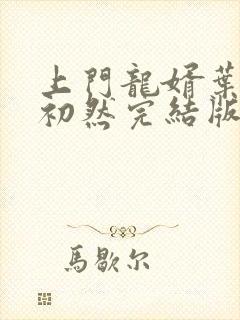 上門龍婿葉
初然完結版
馬歇尔